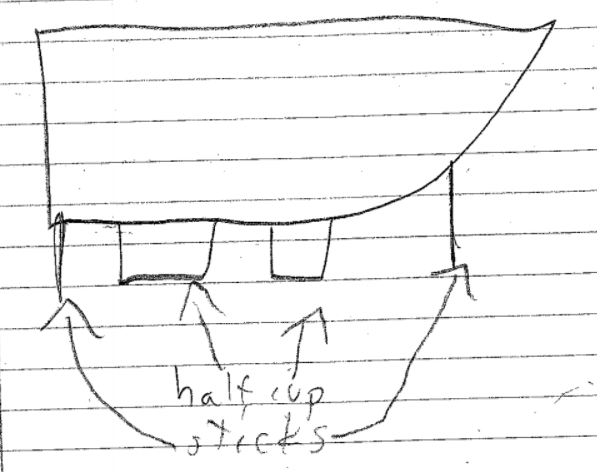 half cup
sticks